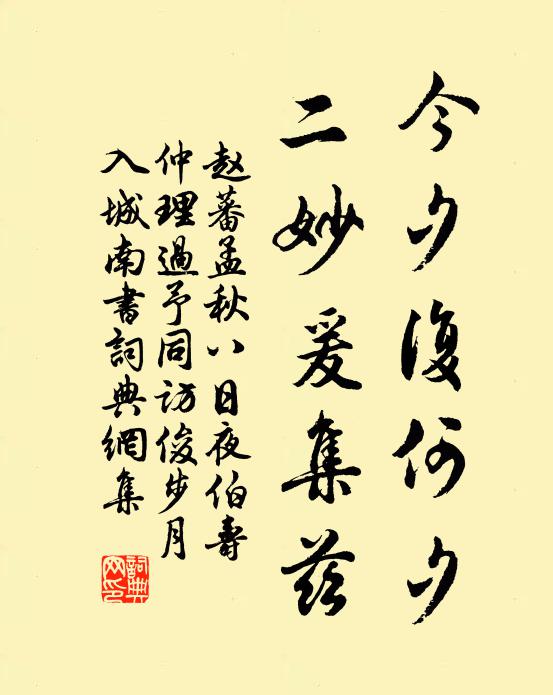 今夕復何夕
二妙爰集兹
赵蕃孟秋八日夜伯壽
仲理過予同访俊步月
入城南書詞典網集
詞典
网印